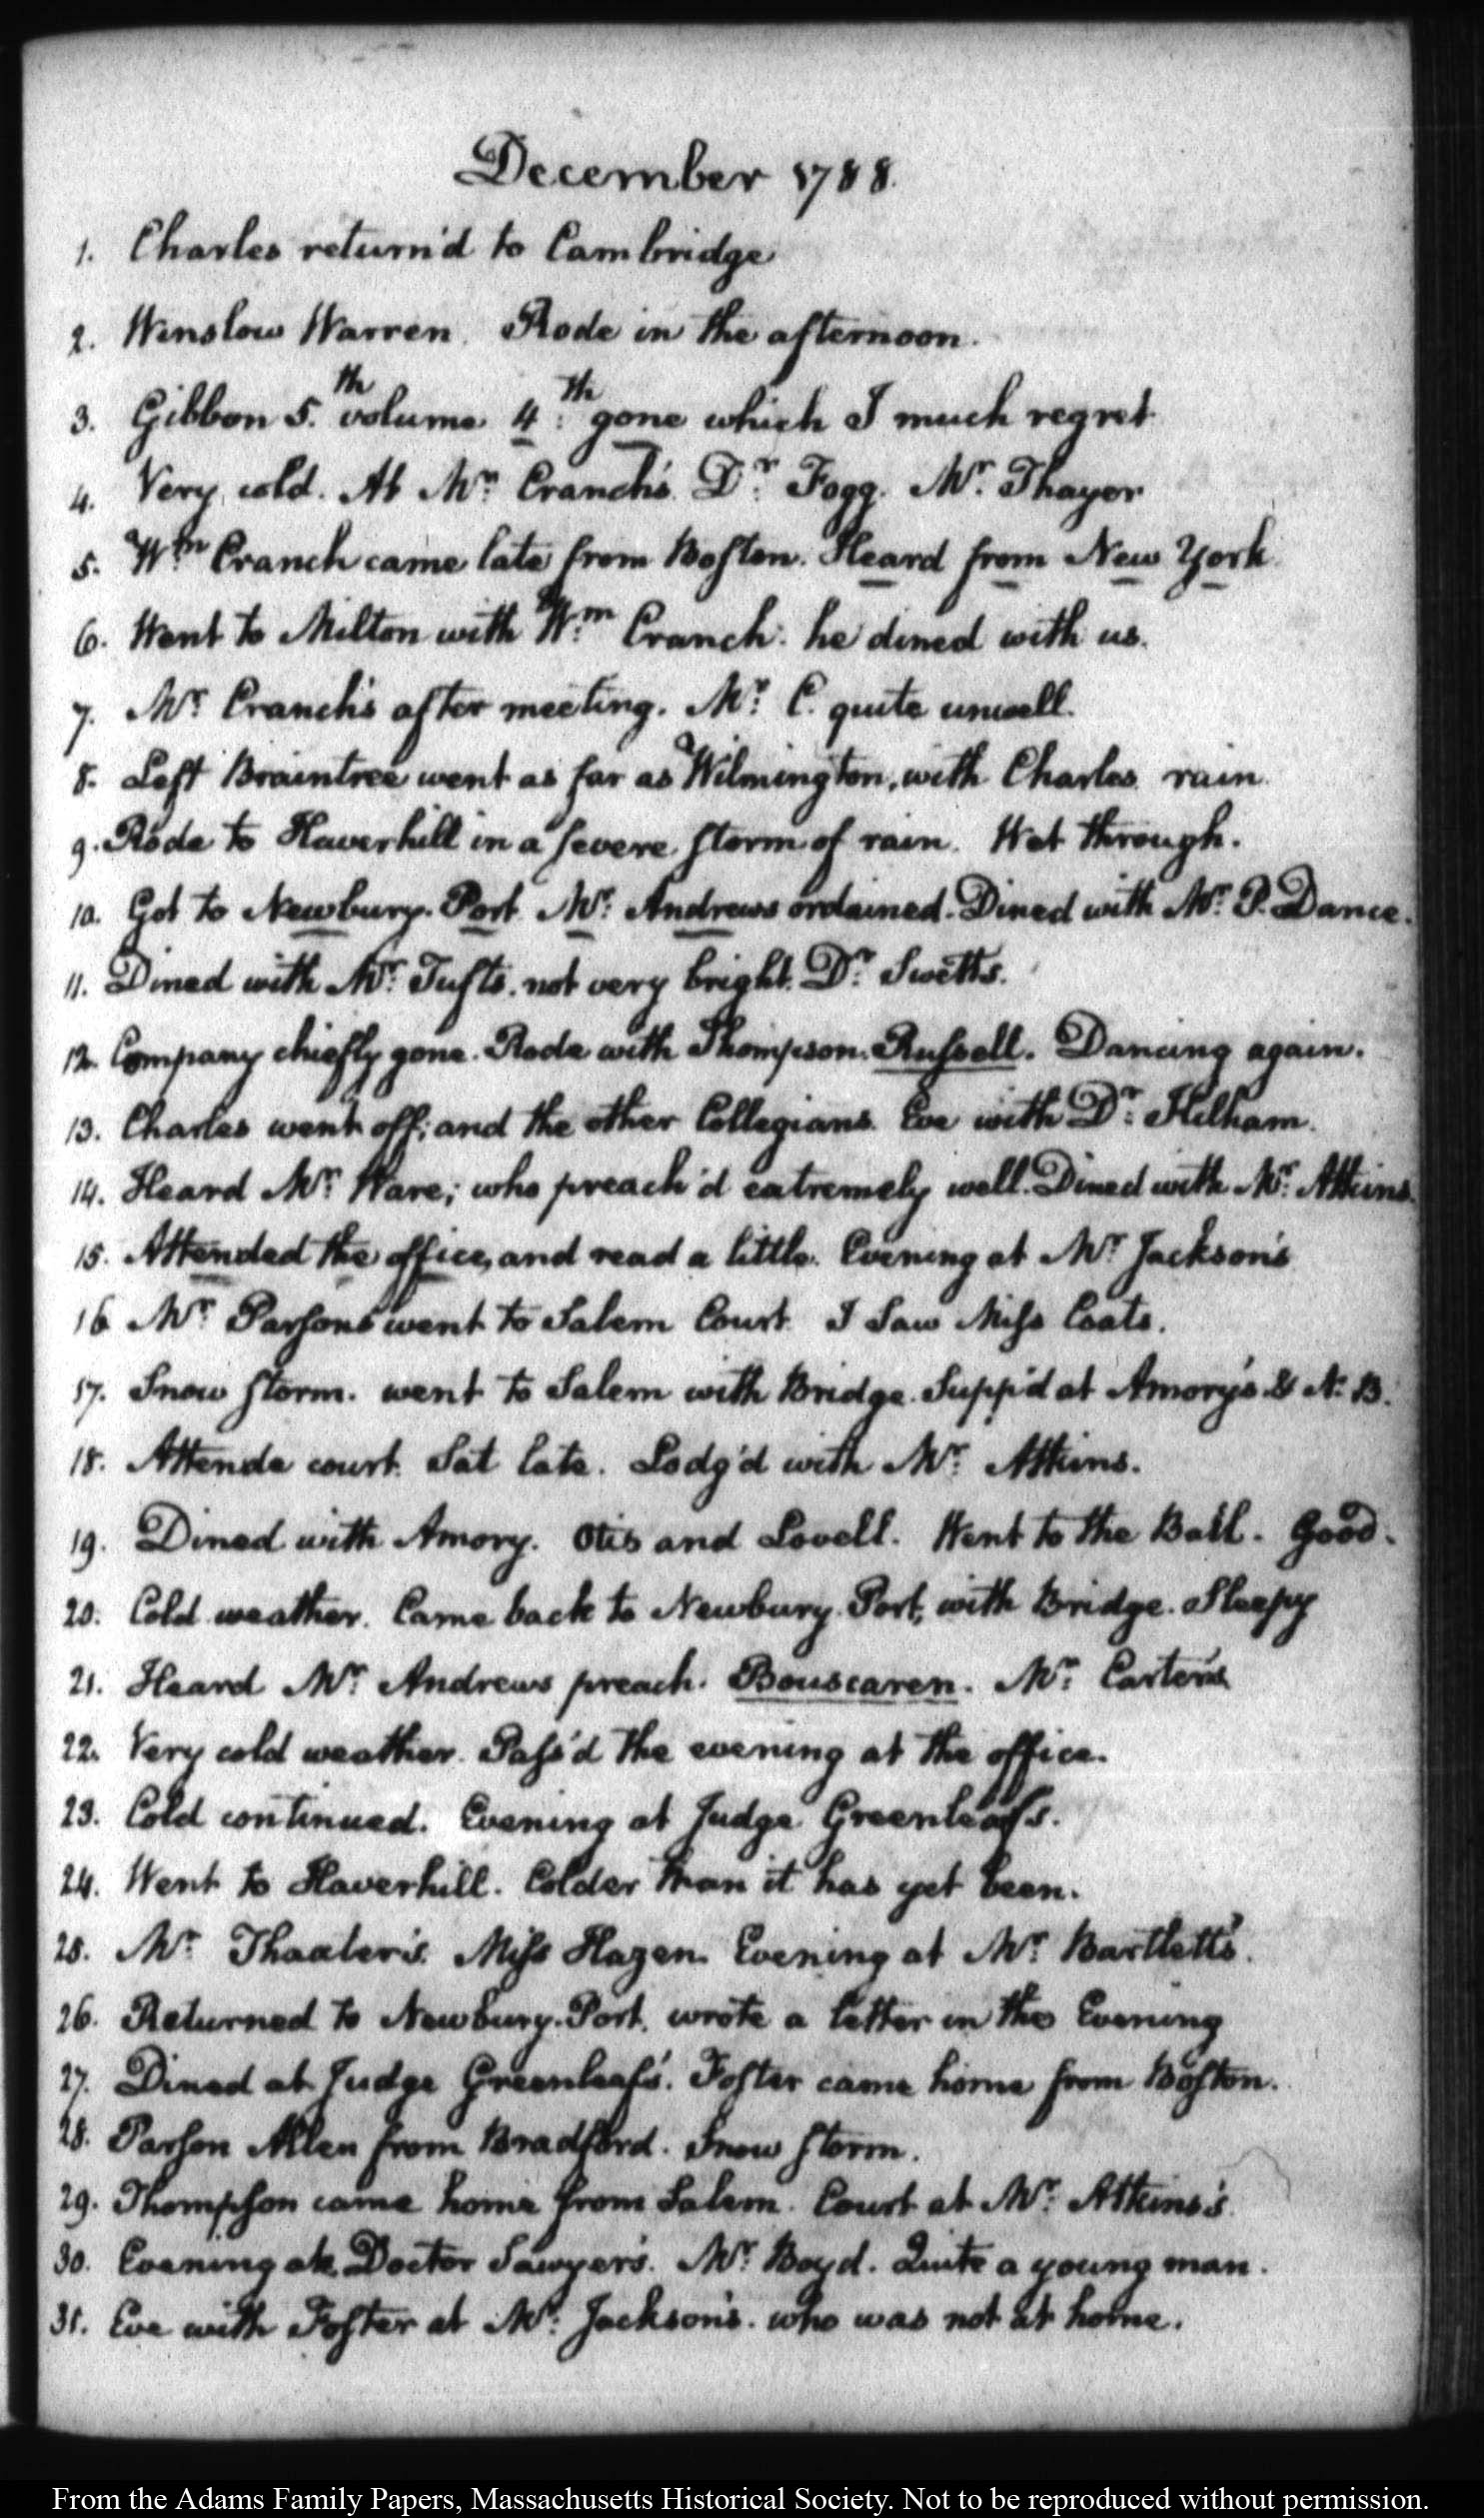 December 1788.
1. Charles return'd to Cambridge
2. Winslow Warren. Rode in the afternoon.
3. Gibbon 5.th volume 4.th gone which I much regret
4. Very cold. At Mr. Cranch's. Dr. Fogg. Mr. Thayer
5. Wm. Cranch came late from Boston. Heard from New York
6. Went to Milton with Wm. Cranch: he dined with us.
7. Mr. Cranch's after meeting. Mr. C. quite unwell.
8. Left Braintree went as far as Wilmington, with Charles. rain.
9. Rode to Haverhill in a severe storm of rain. Wet through.
10. Got to Newbury-Port. Mr. Andrews ordained. Dined with Mr. P. Dance.
11. Dined with Mr. Tufts. not very bright. Dr. Swett's.
12. Company chiefly gone. Rode with Thompson. Russell. Dancing again.
13. Charles went off; and the other Collegians. Eve with Dr. Kilham.
14. Heard Mr. Ware; who preach'd extremely well. Dined with Mr. Atkins.
15. Attended the office, and read a little. Evening at Mr. Jackson's
16 Mr. Parsons went to Salem Court. I Saw Miss Coats.
17. Snow storm. went to Salem with Bridge. Supp'd at Amory's & N. B.
18. Attende court. Sat late. Lodg'd with Mr. Atkins.
19. Dined with Amory. Otis and Lovell. Went to the Ball. Good.
20. Cold weather. Came back to Newbury-Port, with Bridge. Sleepy
21. Heard Mr. Andrews preach. Bouscaren. Mr. Carter's
22. Very cold weather. Pass'd the evening at the office.
23. Cold continued. Evening at Judge Greenleaf's.
24. Went to Haverhill. Colder than it has yet been.
25. Mr. Thaxter's. Miss Hazen. Evening at Mr. Bartlett's.
26. Returned to Newbury-Port. wrote a letter in the Evening
27. Dined at Judge Greenleaf's. Foster came home from Boston.
28. Parson Allen from Bradford. Snow storm.
29. Thompson came home from Salem. Court at Mr. Atkins's
30. Evening at Doctor Sawyer's. Mr. Boyd. Quite a young man.
31. Eve with Foster at Mr. Jackson's. who was not at home.
From the Adams Family Papers, Massachusetts Historical Society. Not to be reproduced without permission.